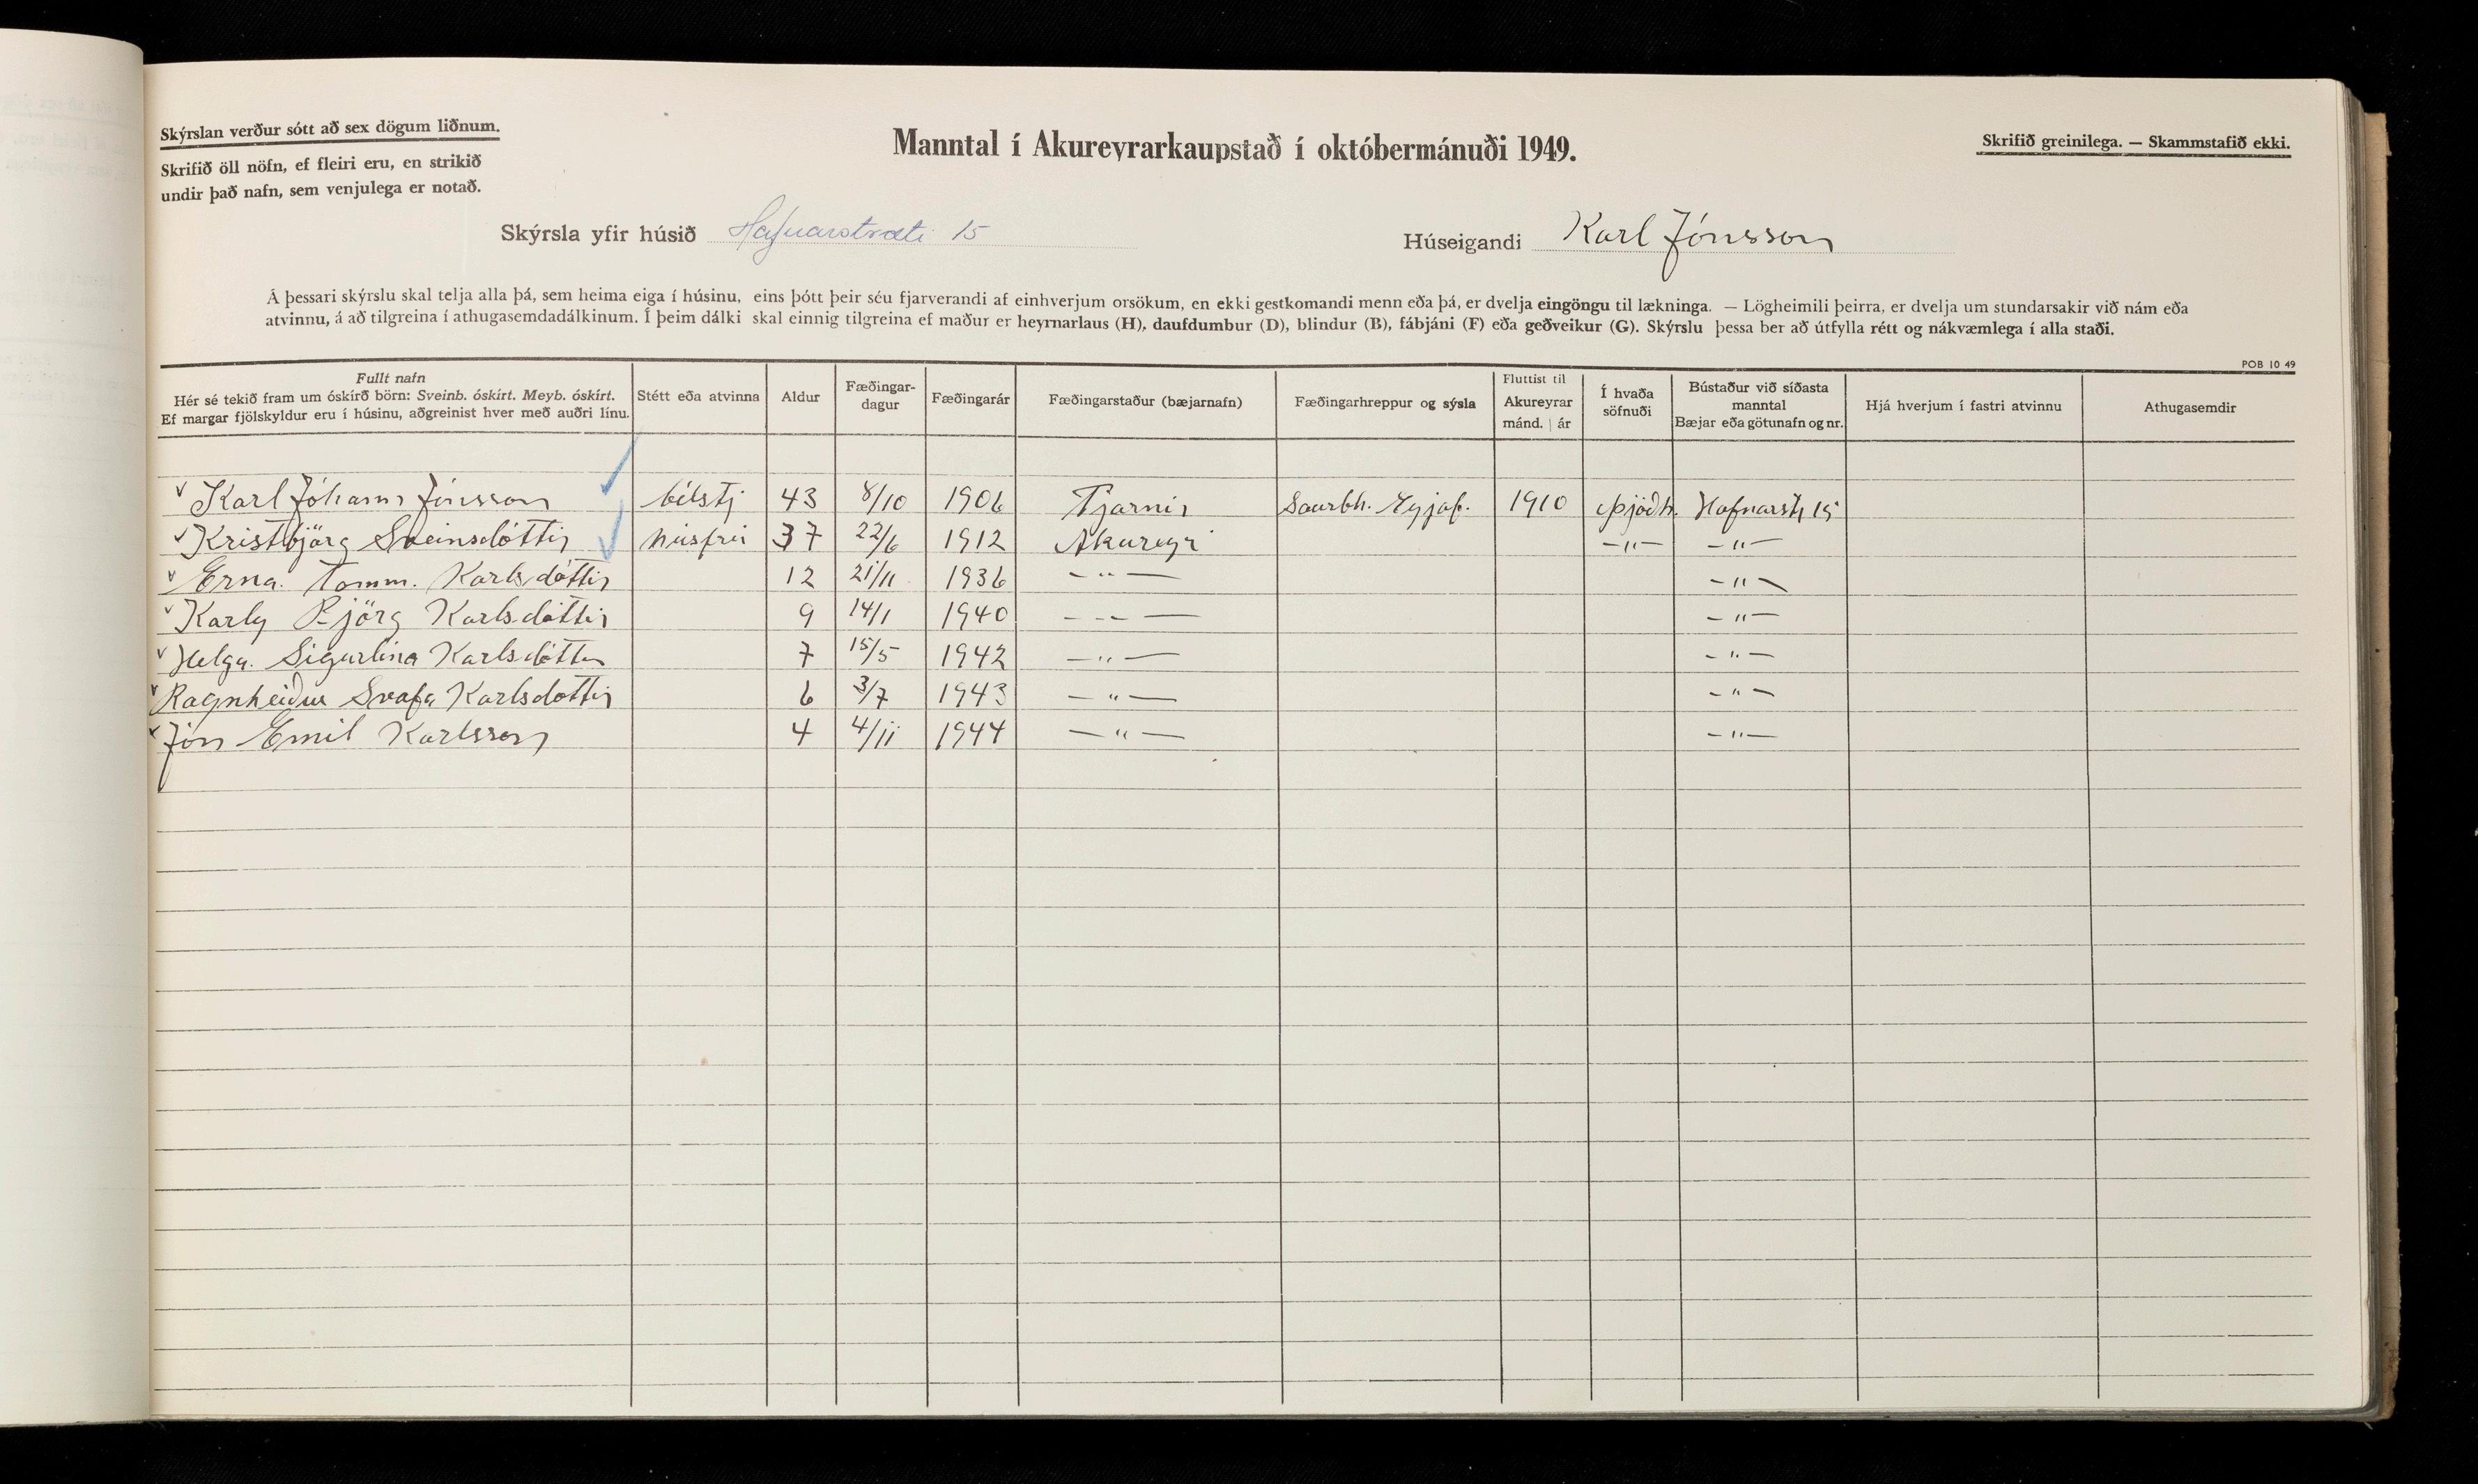 Skýrslan verður sótt að sex dögum liðnum.
Skrifið öll nöfn, ef fleiri eru, en strikið
undir það nafn, sem venjulega er notað.
Manntal í Akureyrarkaupstað í októbermánuði 1949.
Skrifið greinilega. — Skammstafið ekki.
Skýrsla yfir húsið Hafnarstræti 15
Húseigandi Karl Jónsson
Á þessari skýrslu skal telja alla þá, sem heima eiga í húsinu, eins þótt þeir séu fjarverandi af einhverjum orsökum, en ekki gestkomandi menn eða þá, er dvelja eingöngu til lækninga. — Lögheimili þeirra, er dvelja um stundarsakir við nám eða
atvinnu, á að tilgreina í athugasemdadálkinum. Í þeim dálki skal einnig tilgreina ef maður er heyrnarlaus (H), daufdumbur (D), blindur (B), fábjáni (F) eða geðveikur (G). Skýrslu þessa ber að útfylla rétt og nákvæmlega í alla staði.
POB 10 49
Fullt nafn
Hér sé tekið fram um óskírð börn: Sveinb. óskírt. Meyb. óskírt.
Ef margar fjölskyldur eru í húsinu, aðgreinist hver með auðri línu.
Stétt eða atvinna
Aldur
Fæðingar-
dagur
Fæðingarár
Fæðingarstaður (bæjarnafn)
Fæðingarhreppur og sýsla
Fluttist til
Akureyrar
mánd. | ár
Í hvaða
söfnuði
Bústaður við síðasta
manntal
Bæjar eða götunafn og nr.
Hjá hverjum í fastri atvinnu
Athugasemdir
Karl Jóhann Jónsson bílstj 43 8/10 1906 Tjarnir Saurbh. Eyjaf. 1910 Þjóðk. Hafnarstr 15
Kristbjörg Sveinsdóttir húsfrú 37 22/6 1912 Akureyri —"— —"—
Erna Tomm. Karlsdóttir 12 21/11 1936 —"— —"—
Karly Björg Karlsdóttir 9 14/1 1940 —"— —"—
Helga Sigurlína Karlsdóttir 7 15/5 1942 —"— —"—
Ragnheiður Svafa Karlsdóttir 6 3/7 1943 —"— —"—
Jón Emil Karlsson 4 4/11 1944 —"— —"—